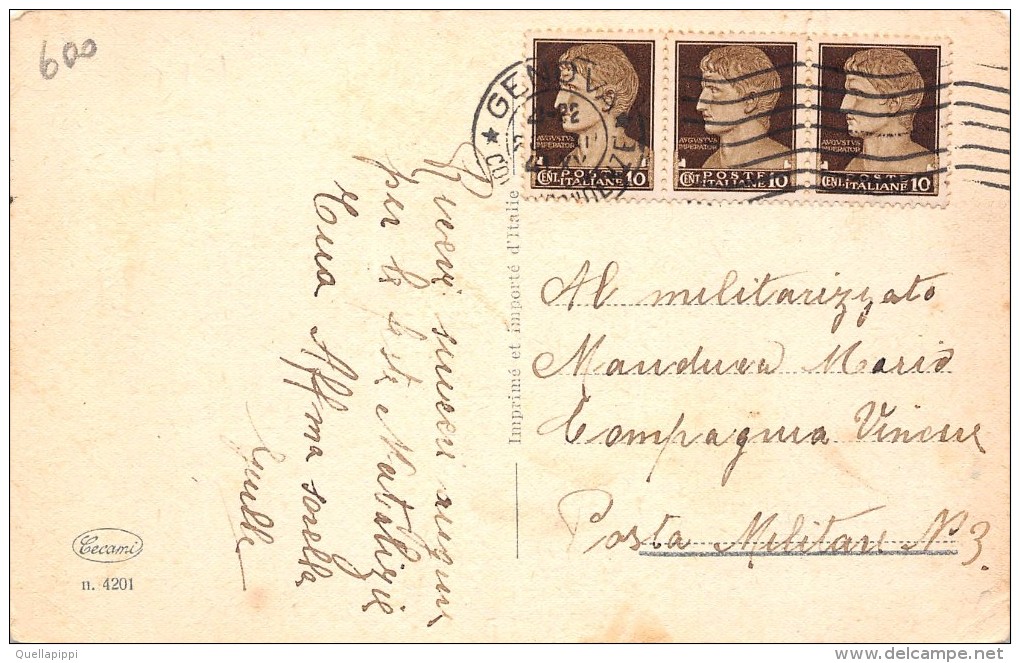 600
GENOVA
AVGVSTVS
IMPERATOR
CENT. POSTE ITALIANE 10
AVGVSTVS
IMPERATOR
CENT. POSTE ITALIANE 10
AVGVSTVS
IMPERATOR
CENT. POSTE ITALIANE 10
Ricevi sinceri auguri
per le feste Natalizie
Tua Affma sorella
Imprimé et importé d'Italie
Al militarizzato
Manduca Mario
Compagnia
Posta Militare N° 3.
Cecami
n. 4201
Quellapippi
delcampe.net